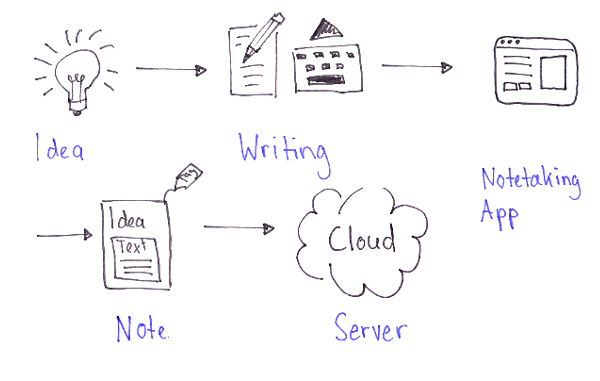 Idea
Writing
Notetaking
App
Tag
Idea
Text
Cloud
Note.
Server